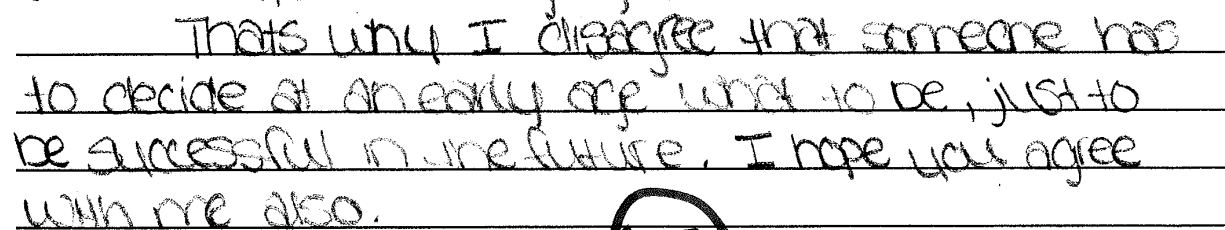 Thats why I disagree that someone has
to decide at an early age what to be, just to
be successful in the future. I hope you agree
with me also.